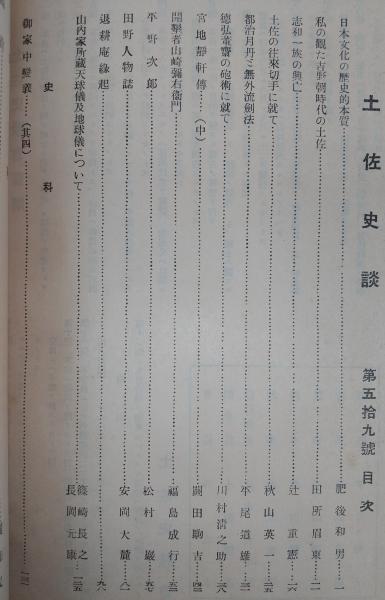 土佐史談 第五拾九號 目次
日本文化の歴史的本質……肥後和男…一
私の觀た吉野朝時代の土佐……田所眉東…二
志和一族の興亡……辻重憲…一六
土佐の往來切手に就て……秋山英一…二五
都治月丹と無外流劍法……平尾道雄…三一
德弘董齋の砲術に就て……川村淸之助…三八
宮地靜軒傳（中）……關田駒吉…四三
開墾者山崎彌右衞門……福島成行…五三
平野次郎……松村巖…五七
田野人物誌……安岡大麓…八一
退耕庵緣起……九八
山內家所藏天球儀及地球儀について……篠崎長之 長岡元康…一二五
史料
御家中變義……（其四）